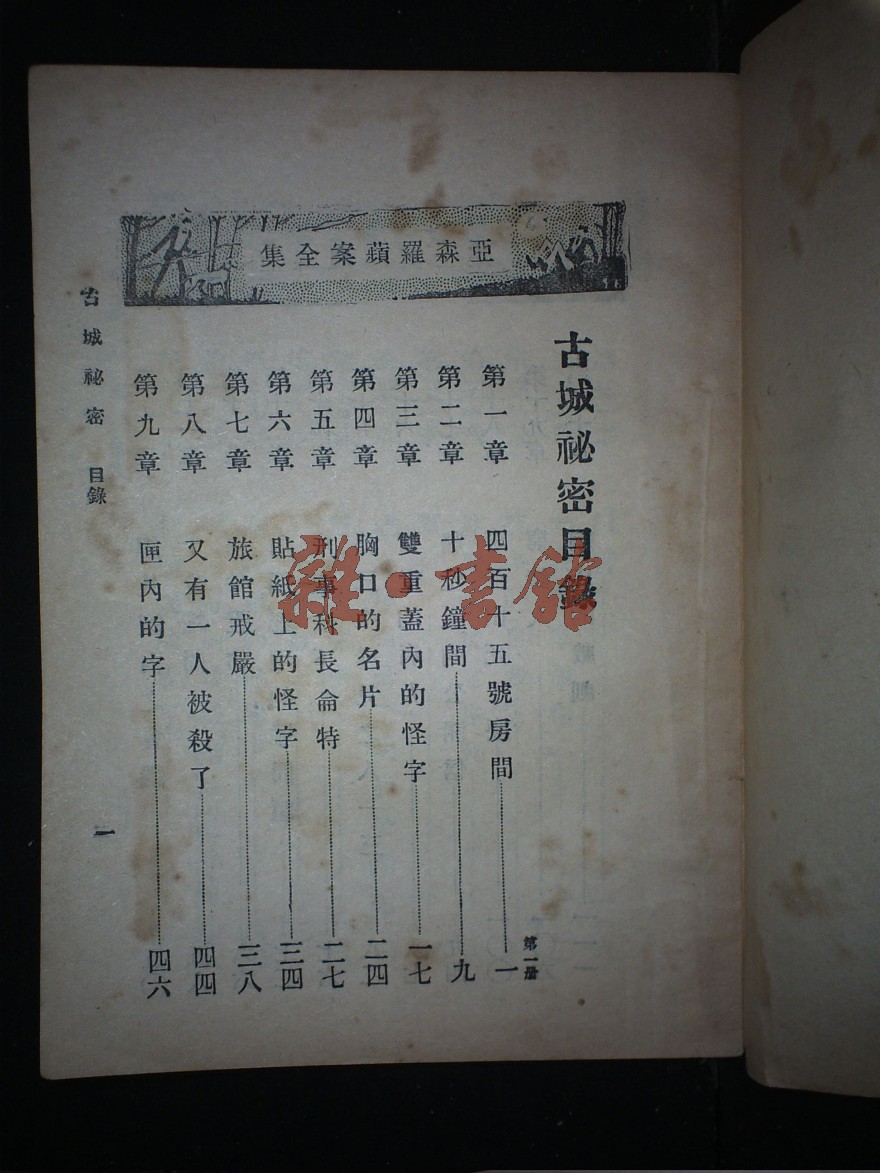 亞森羅蘋案全集
古城祕密目錄
第一册
第一章 四百十五號房間 一
第二章 十秒鐘間 九
第三章 雙重蓋內的怪字 一七
第四章 胸口的名片 二四
第五章 刑事科長侖特 二七
第六章 貼紙上的怪字 三四
第七章 旅館戒嚴 三八
第八章 又有一人被殺了 四四
第九章 匣內的字 四六
古城祕密 目錄
一
雜·書館